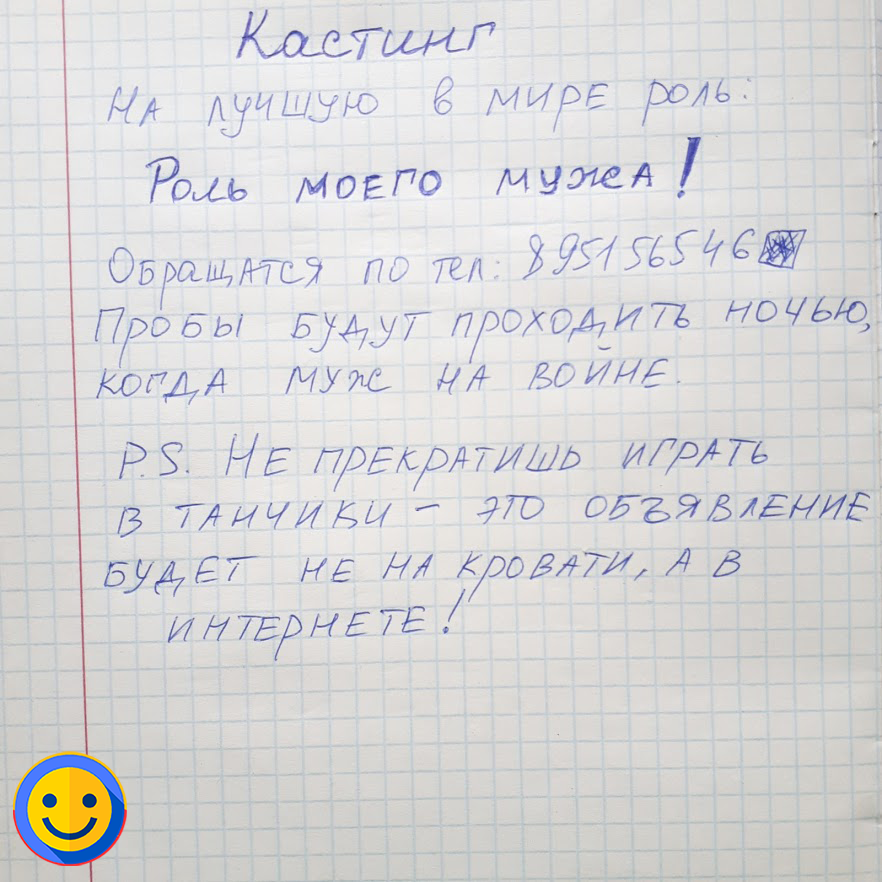 Кастинг
На лучшую в мире роль:
Роль моего мужа!
Обращатся по тел: 8951565466
Пробы будут проходить ночью,
когда муж на войне.
P.S. Не прекратишь играть
в танчики - это объявление
будет не на кровати, а в
интернете!